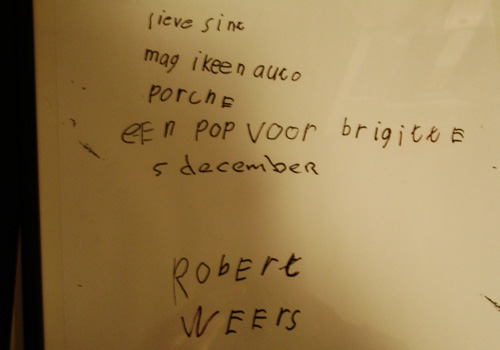 lieve sint
mag ik een auto
porche
een pop voor brigitte
5 december
Robert
Weers